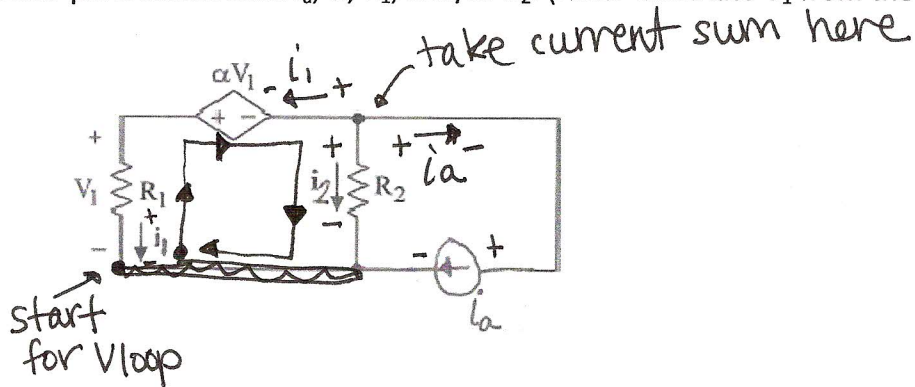 take current sum here
αV₁
- i₁ +
+ -
+
V₁
-
R₁
+
i₁
-
+
i₂
-
R₂
+ -
ia
- +
ia
start
for Vloop